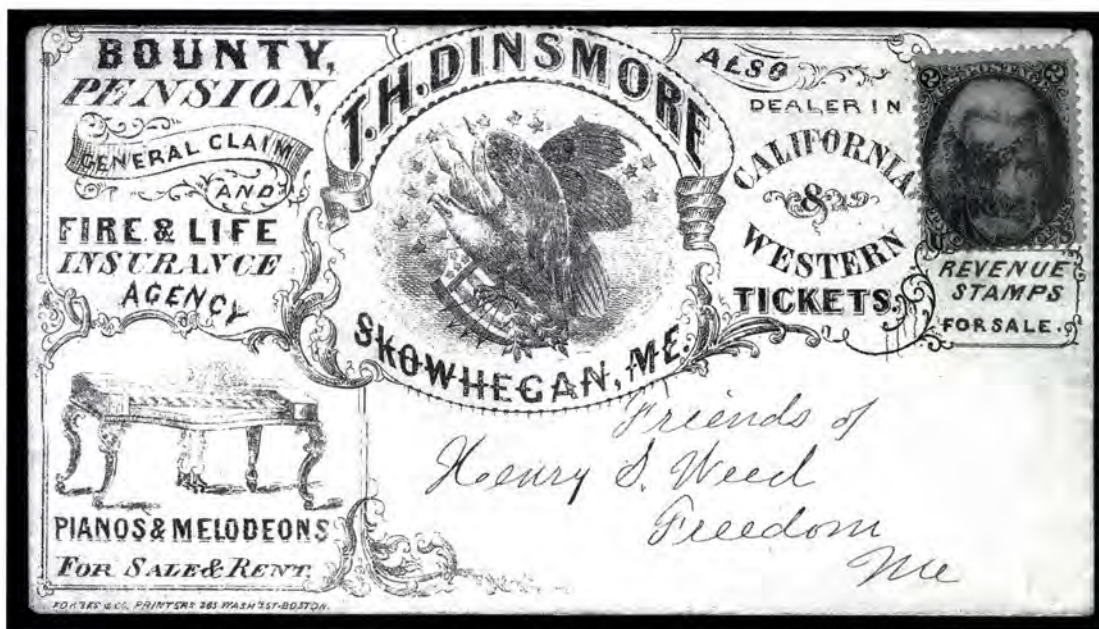 BOUNTY,
PENSION,
GENERAL CLAIM
AND
FIRE & LIFE
INSURANCE
AGENCY
T.H. DINSMORE
SKOWHEGAN, ME.
ALSO
DEALER IN
CALIFORNIA
&
WESTERN
TICKETS.
2 2
U
REVENUE
STAMPS
FOR SALE.
PIANOS & MELODEONS
FOR SALE & RENT.
PRINTERS 283 WASHN ST-BOSTON.
Friends of
Henry S. Weed
Freedom
Me